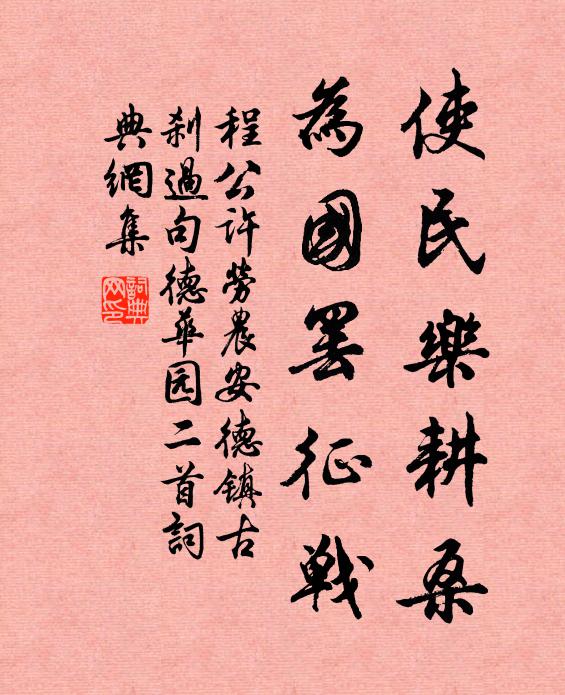 使民樂耕桑
為國罷征戰
程公許勞農安德鎮古
刹過句德華园二首詞
典網集
詞典网印